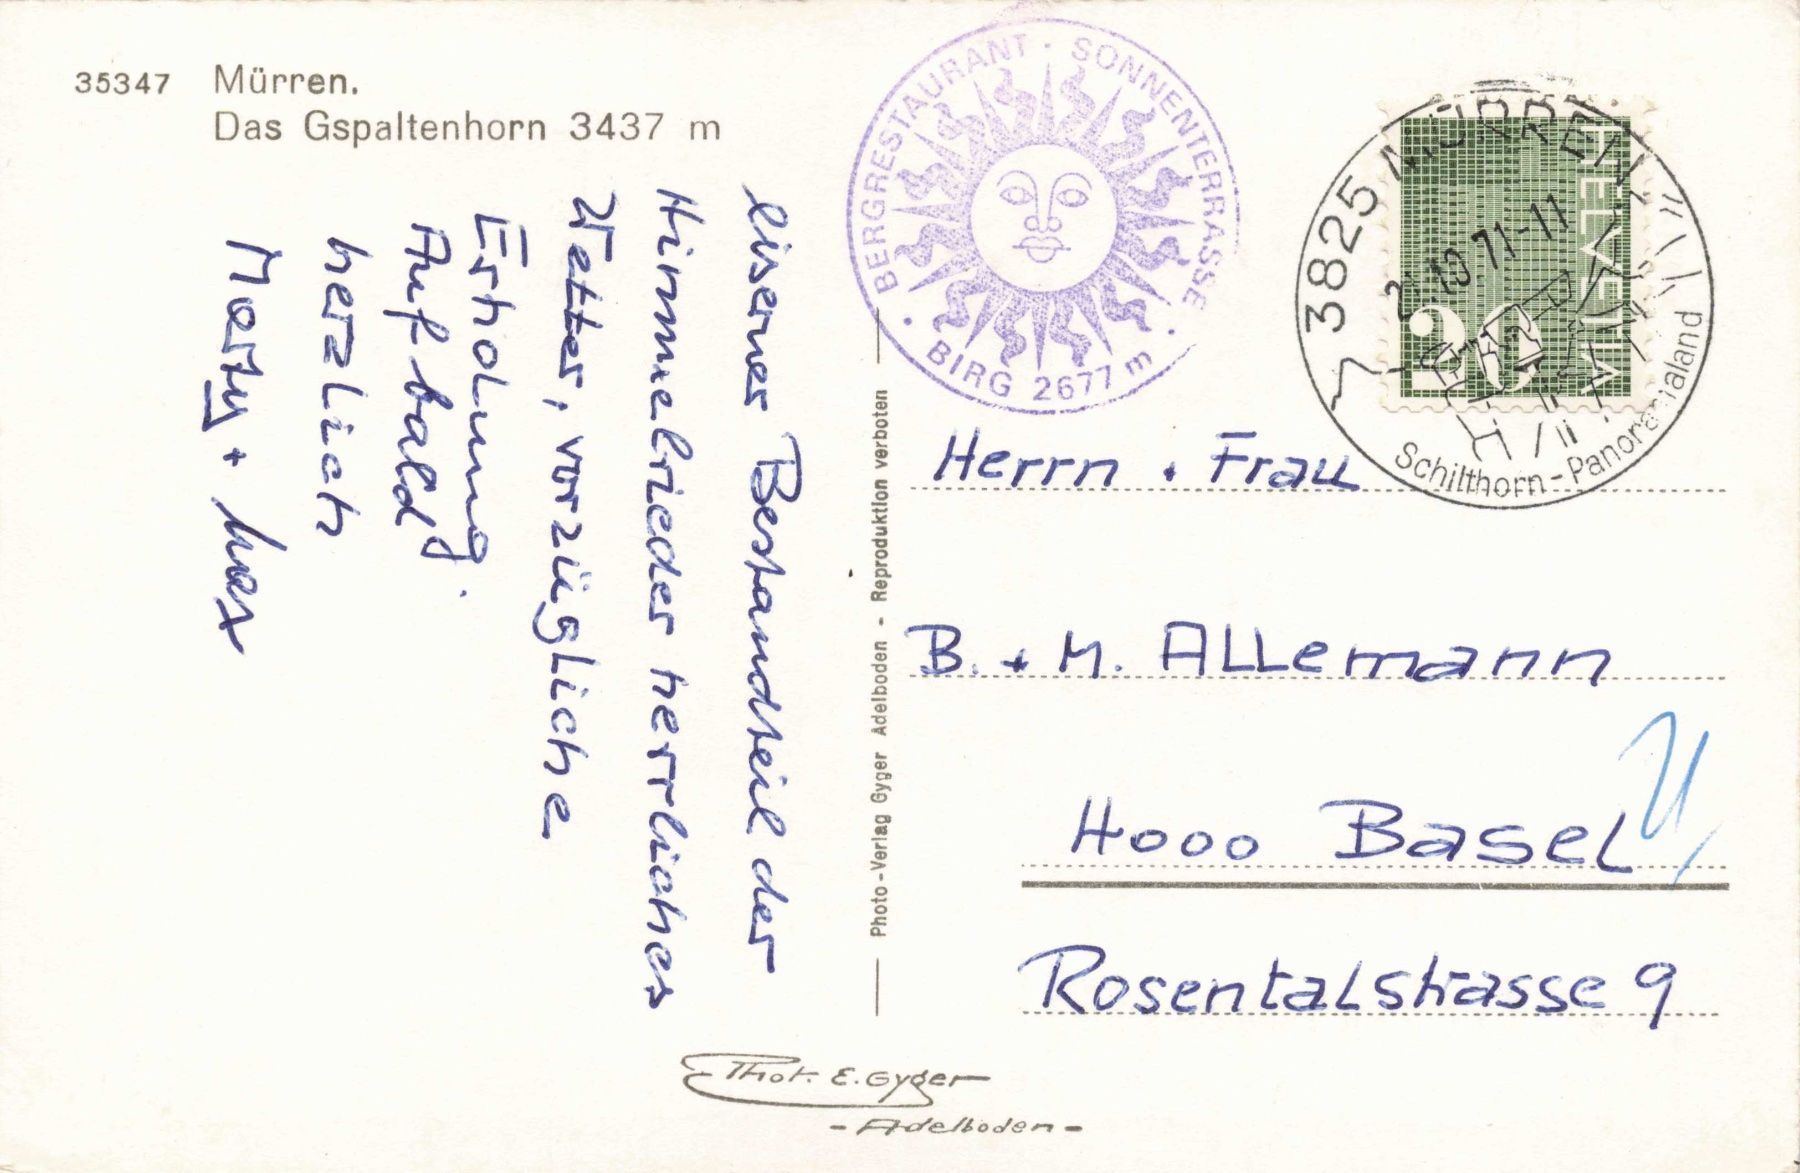 35347 Mürren.
Das Gspaltenhorn 3437 m
BERGRESTAURANT · SONNENTERRASSE
· BIRG 2677 m ·
3825 MÜRREN
21.10.71-11
Schilthorn-Panoramaland
HELVETIA
20
eiserner Bestandteil der
Himmelrieder herrliches
Wetter, vorzügliche
Erholung.
Auf bald
herzlich
Marty + Max
Photo-Verlag Gyger Adelboden - Reproduktion verboten
Herrn + Frau
B. + M. ALLemann
4000 Basel
Rosentalstrasse 9
Phot. E. Gyger
- Adelboden -